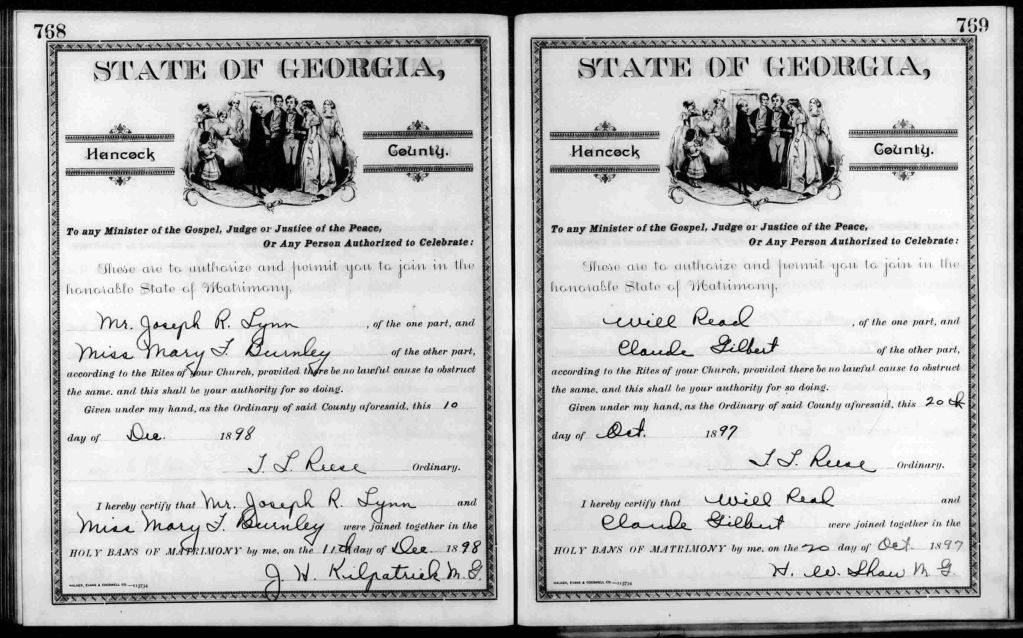 768
STATE OF GEORGIA,
Hancock County.
To any Minister of the Gospel, Judge or Justice of the Peace,
Or Any Person Authorized to Celebrate:
These are to authorize and permit you to join in the
honorable State of Matrimony,
Mr. Joseph R. Lynn , of the one part, and
Miss Mary F. Burnley of the other part,
according to the Rites of your Church, provided there be no lawful cause to obstruct
the same, and this shall be your authority for so doing.
Given under my hand, as the Ordinary of said County aforesaid, this 10
day of Dec. 1898
T. L. Reese Ordinary.
I hereby certify that Mr. Joseph R. Lynn and
Miss Mary F. Burnley were joined together in the
HOLY BANS OF MATRIMONY by me, on the 11th day of Dec. 1898
J. H. Kilpatrick M. G.
769
STATE OF GEORGIA,
Hancock County.
To any Minister of the Gospel, Judge or Justice of the Peace,
Or Any Person Authorized to Celebrate:
These are to authorize and permit you to join in the
honorable State of Matrimony,
Will Read , of the one part, and
Claude Gilbert of the other part,
according to the Rites of your Church, provided there be no lawful cause to obstruct
the same, and this shall be your authority for so doing.
Given under my hand, as the Ordinary of said County aforesaid, this 20th
day of Oct. 1897
T. L. Reese Ordinary.
I hereby certify that Will Read and
Claude Gilbert were joined together in the
HOLY BANS OF MATRIMONY by me, on the 20 day of Oct 1897
H. W. Shaw M. G.